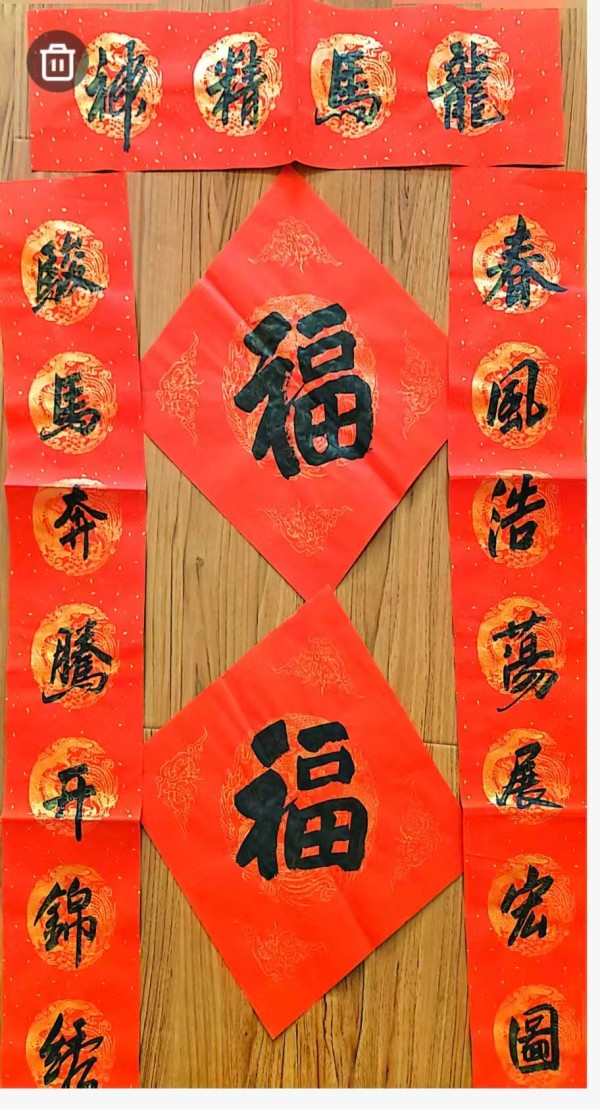 龍馬精神
春風浩蕩展宏圖
駿馬奔騰开錦綉
福
福